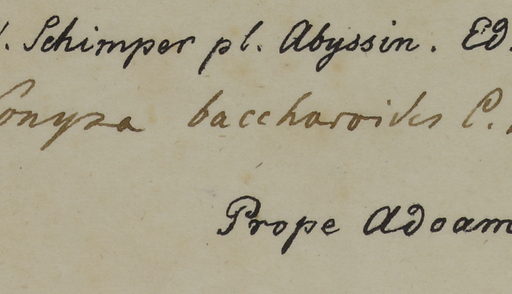 . Schimper pl. Abyssin. Ed.
Conyza baccharoides C.
Prope Adoam